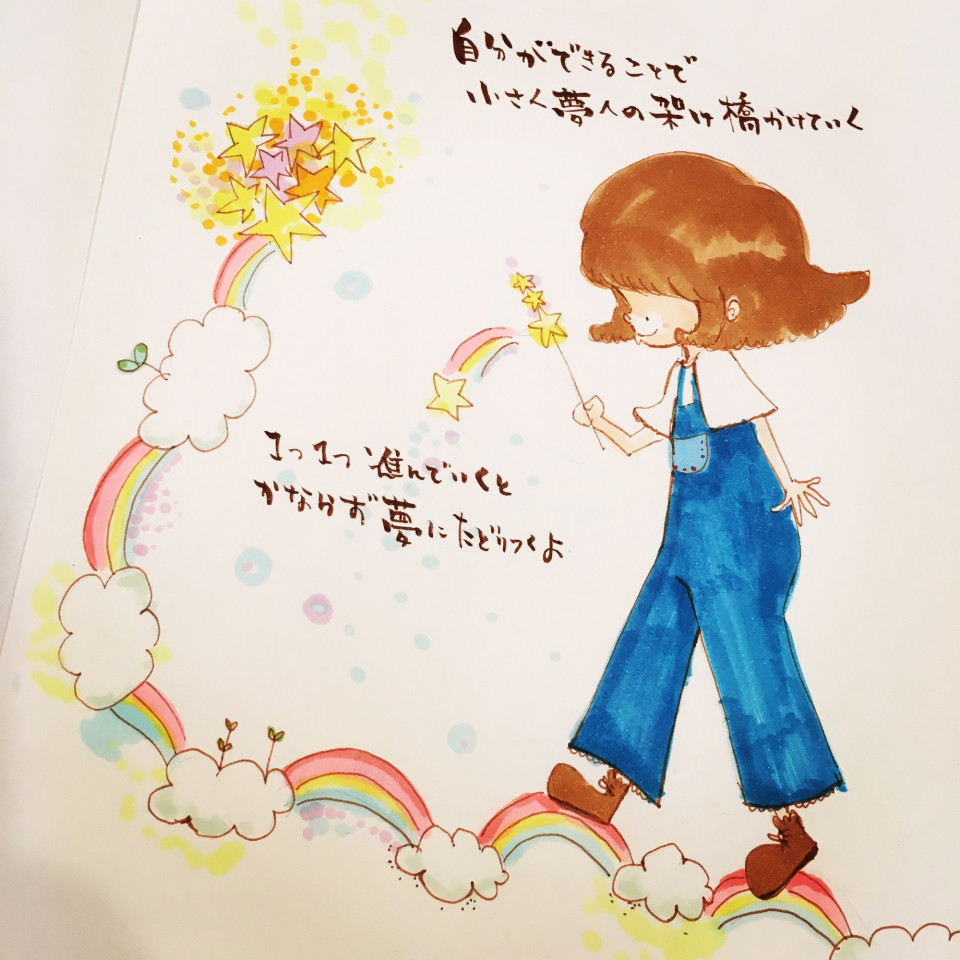 自分ができることで
小さく夢への架け橋かけていく
1つ1つ進んでいくと
かならず夢にたどりつくよ